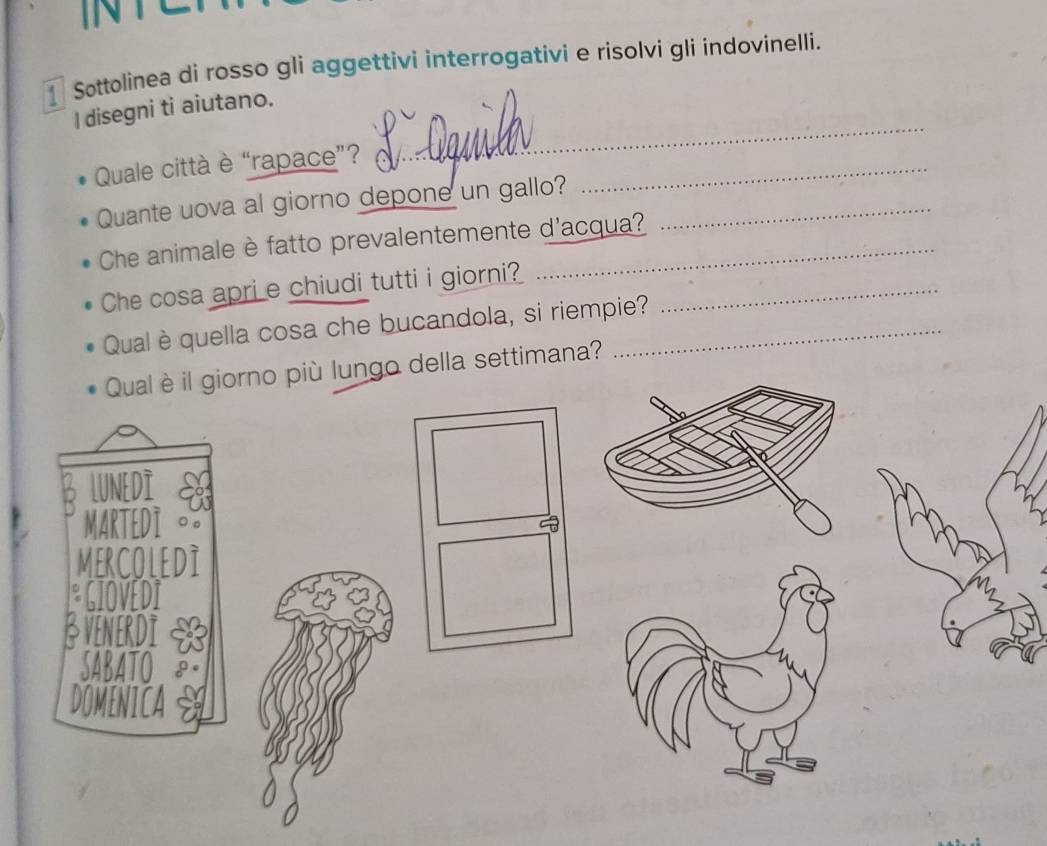 1 Sottolinea di rosso gli aggettivi interrogativi e risolvi gli indovinelli.
I disegni ti aiutano.
• Quale città è “rapace”? L'Aquila
• Quante uova al giorno depone un gallo?
• Che animale è fatto prevalentemente d'acqua?
• Che cosa apri e chiudi tutti i giorni?
• Qual è quella cosa che bucandola, si riempie?
• Qual è il giorno più lungo della settimana?
LUNEDÌ
MARTEDÌ
MERCOLEDÌ
GIOVEDÌ
VENERDÌ
SABATO
DOMENICA